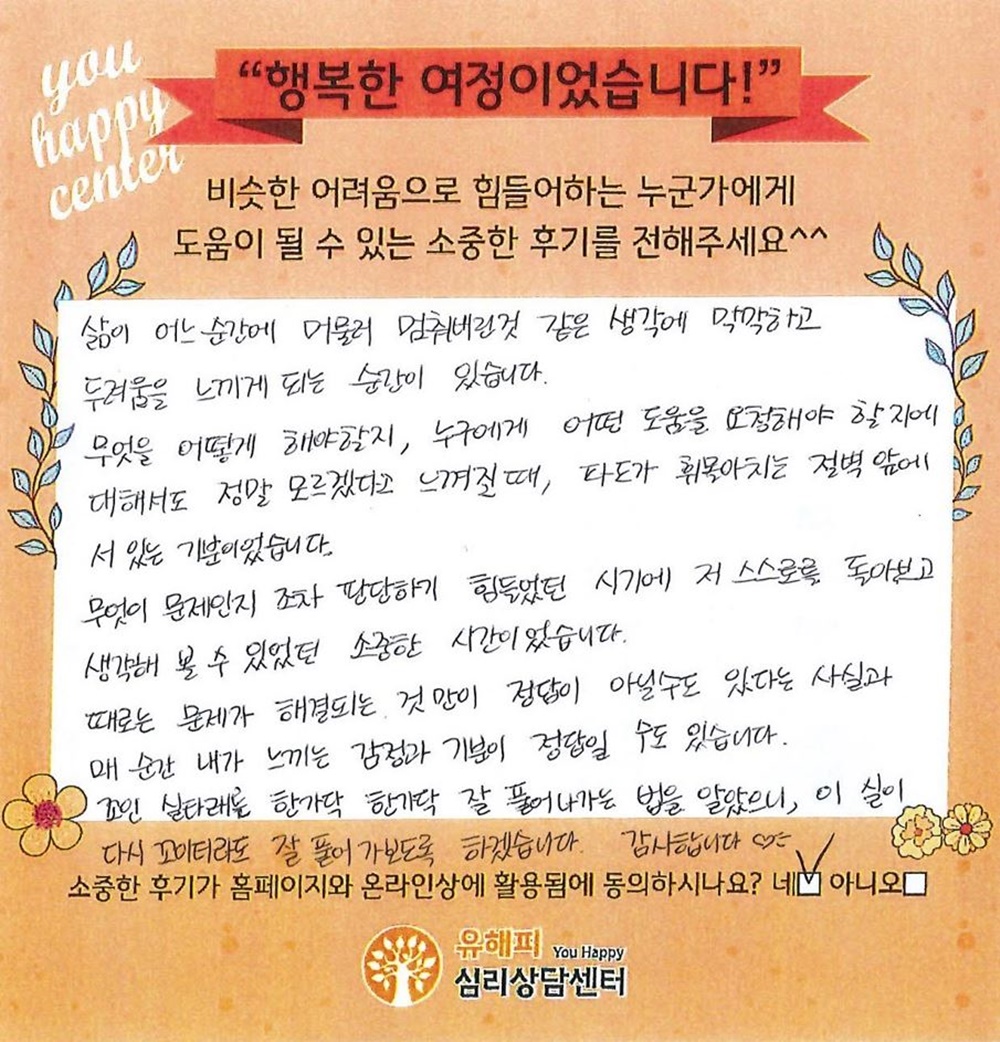 you
happy
center
“행복한 여정이었습니다!”
비슷한 어려움으로 힘들어하는 누군가에게
도움이 될 수 있는 소중한 후기를 전해주세요^^
삶이 어느 순간에 머물러 멈춰버린것 같은 생각에 막막하고
두려움을 느끼게 되는 순간이 있습니다.
무엇을 어떻게 해야할지, 누구에게 어떤 도움을 요청해야 할지에
대해서도 정말 모르겠다고 느껴질 때, 파도가 휘몰아치는 절벽 앞에
서 있는 기분이었습니다.
무엇이 문제인지 조차 판단하기 힘들었던 시기에 저 스스로를 돌아보고
생각해 볼 수 있었던 소중한 시간이었습니다.
때로는 문제가 해결되는 것 만이 정답이 아닐수도 있다는 사실과
매 순간 내가 느끼는 감정과 기분이 정답일 수도 있습니다.
꼬인 실타래를 한가닥 한가닥 잘 풀어나가는 법을 알았으니, 이 실이
다시 꼬이더라도 잘 풀어 가보도록 하겠습니다. 감사합니다 ♡
소중한 후기가 홈페이지와 온라인상에 활용됨에 동의하시나요? 네☑ 아니오□
유해피 You Happy
심리상담센터